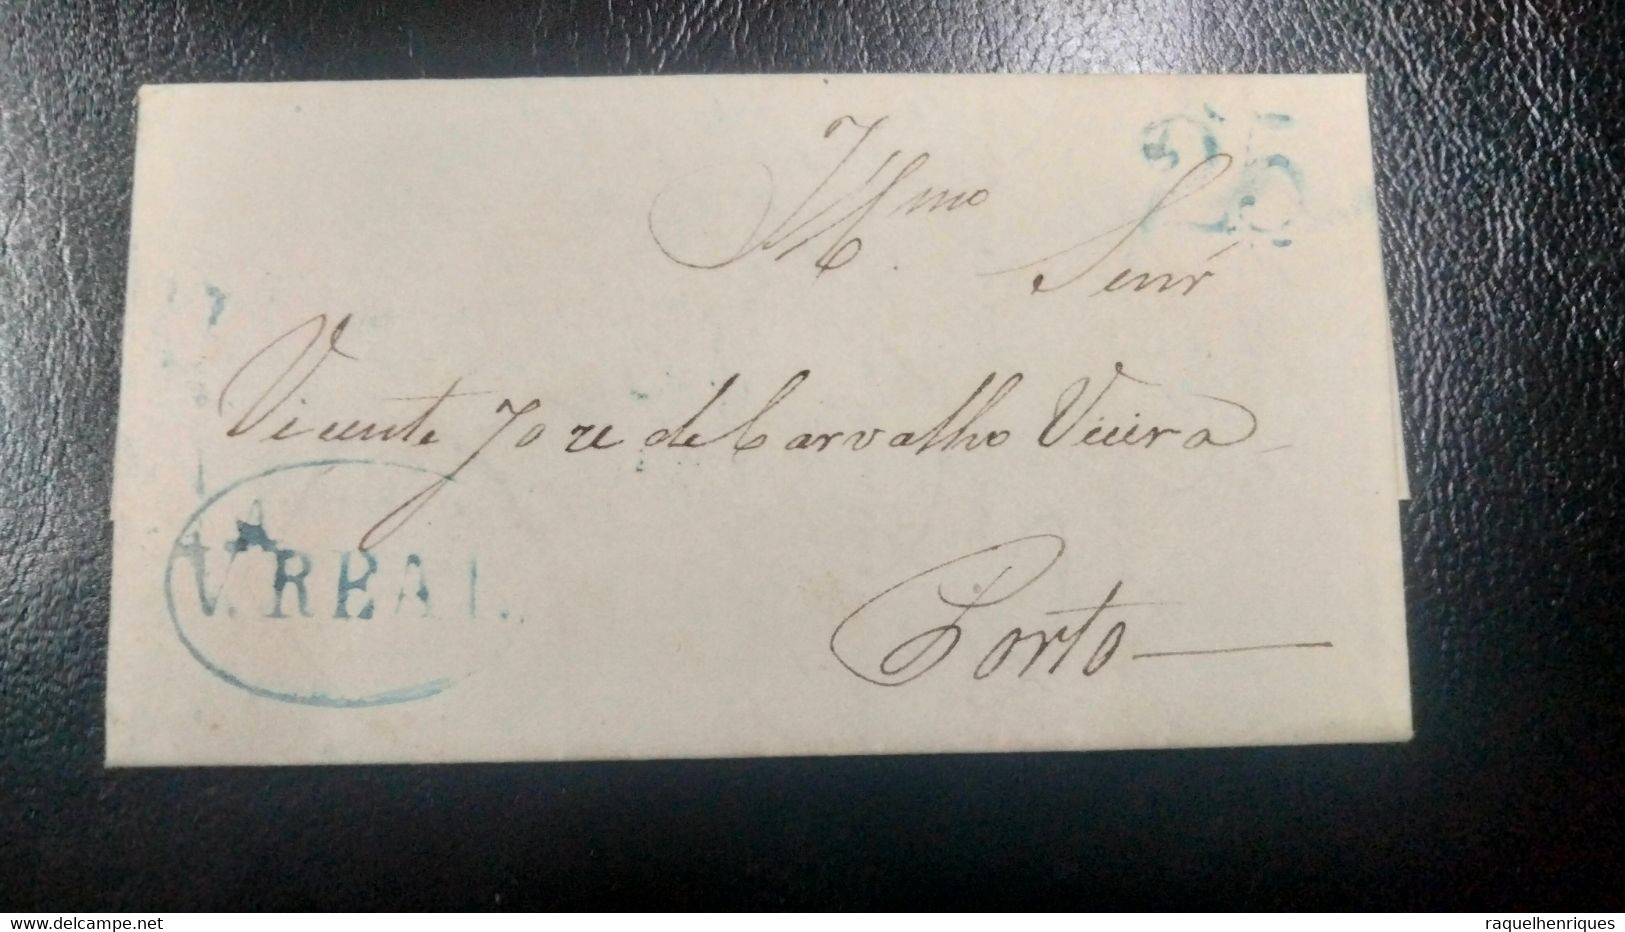 25
Illmo. Senr
Vicente Joze de Carvalho Vieira
V. REAL.
Porto
delcampe.net
raquelhenriques